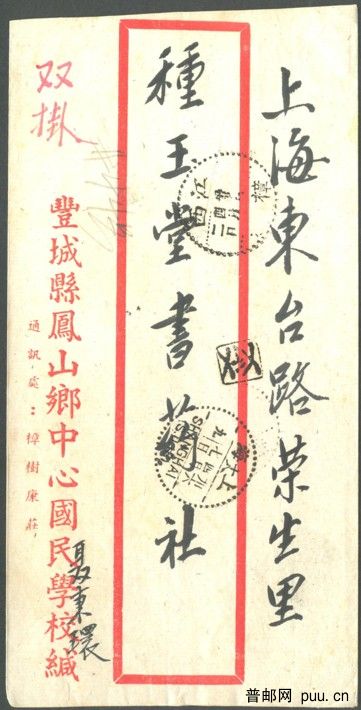 上海東台路荣生里
種玉堂書葯社
SHANGHAI
双掛
豐城縣鳳山鄉中心國民學校緘
通訊處：樟樹康莊，
聂東環
普邮网 puu.cn